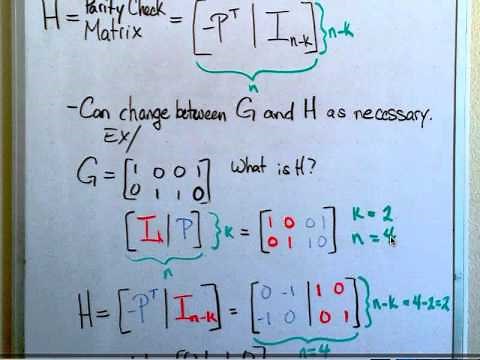 H = Parity Check Matrix = [-Pᵀ | I n-k] } n-k
n
-Can change between G and H as necessary.
EX/
G = [1 0 0 1
0 1 1 0] What is H?
[I k | P] } k = [1 0 0 1
0 1 1 0] k = 2
n = 4
n
H = [-Pᵀ | I n-k] = [0 -1 | 1 0
-1 0 | 0 1] } n-k = 4-2=2
n=4